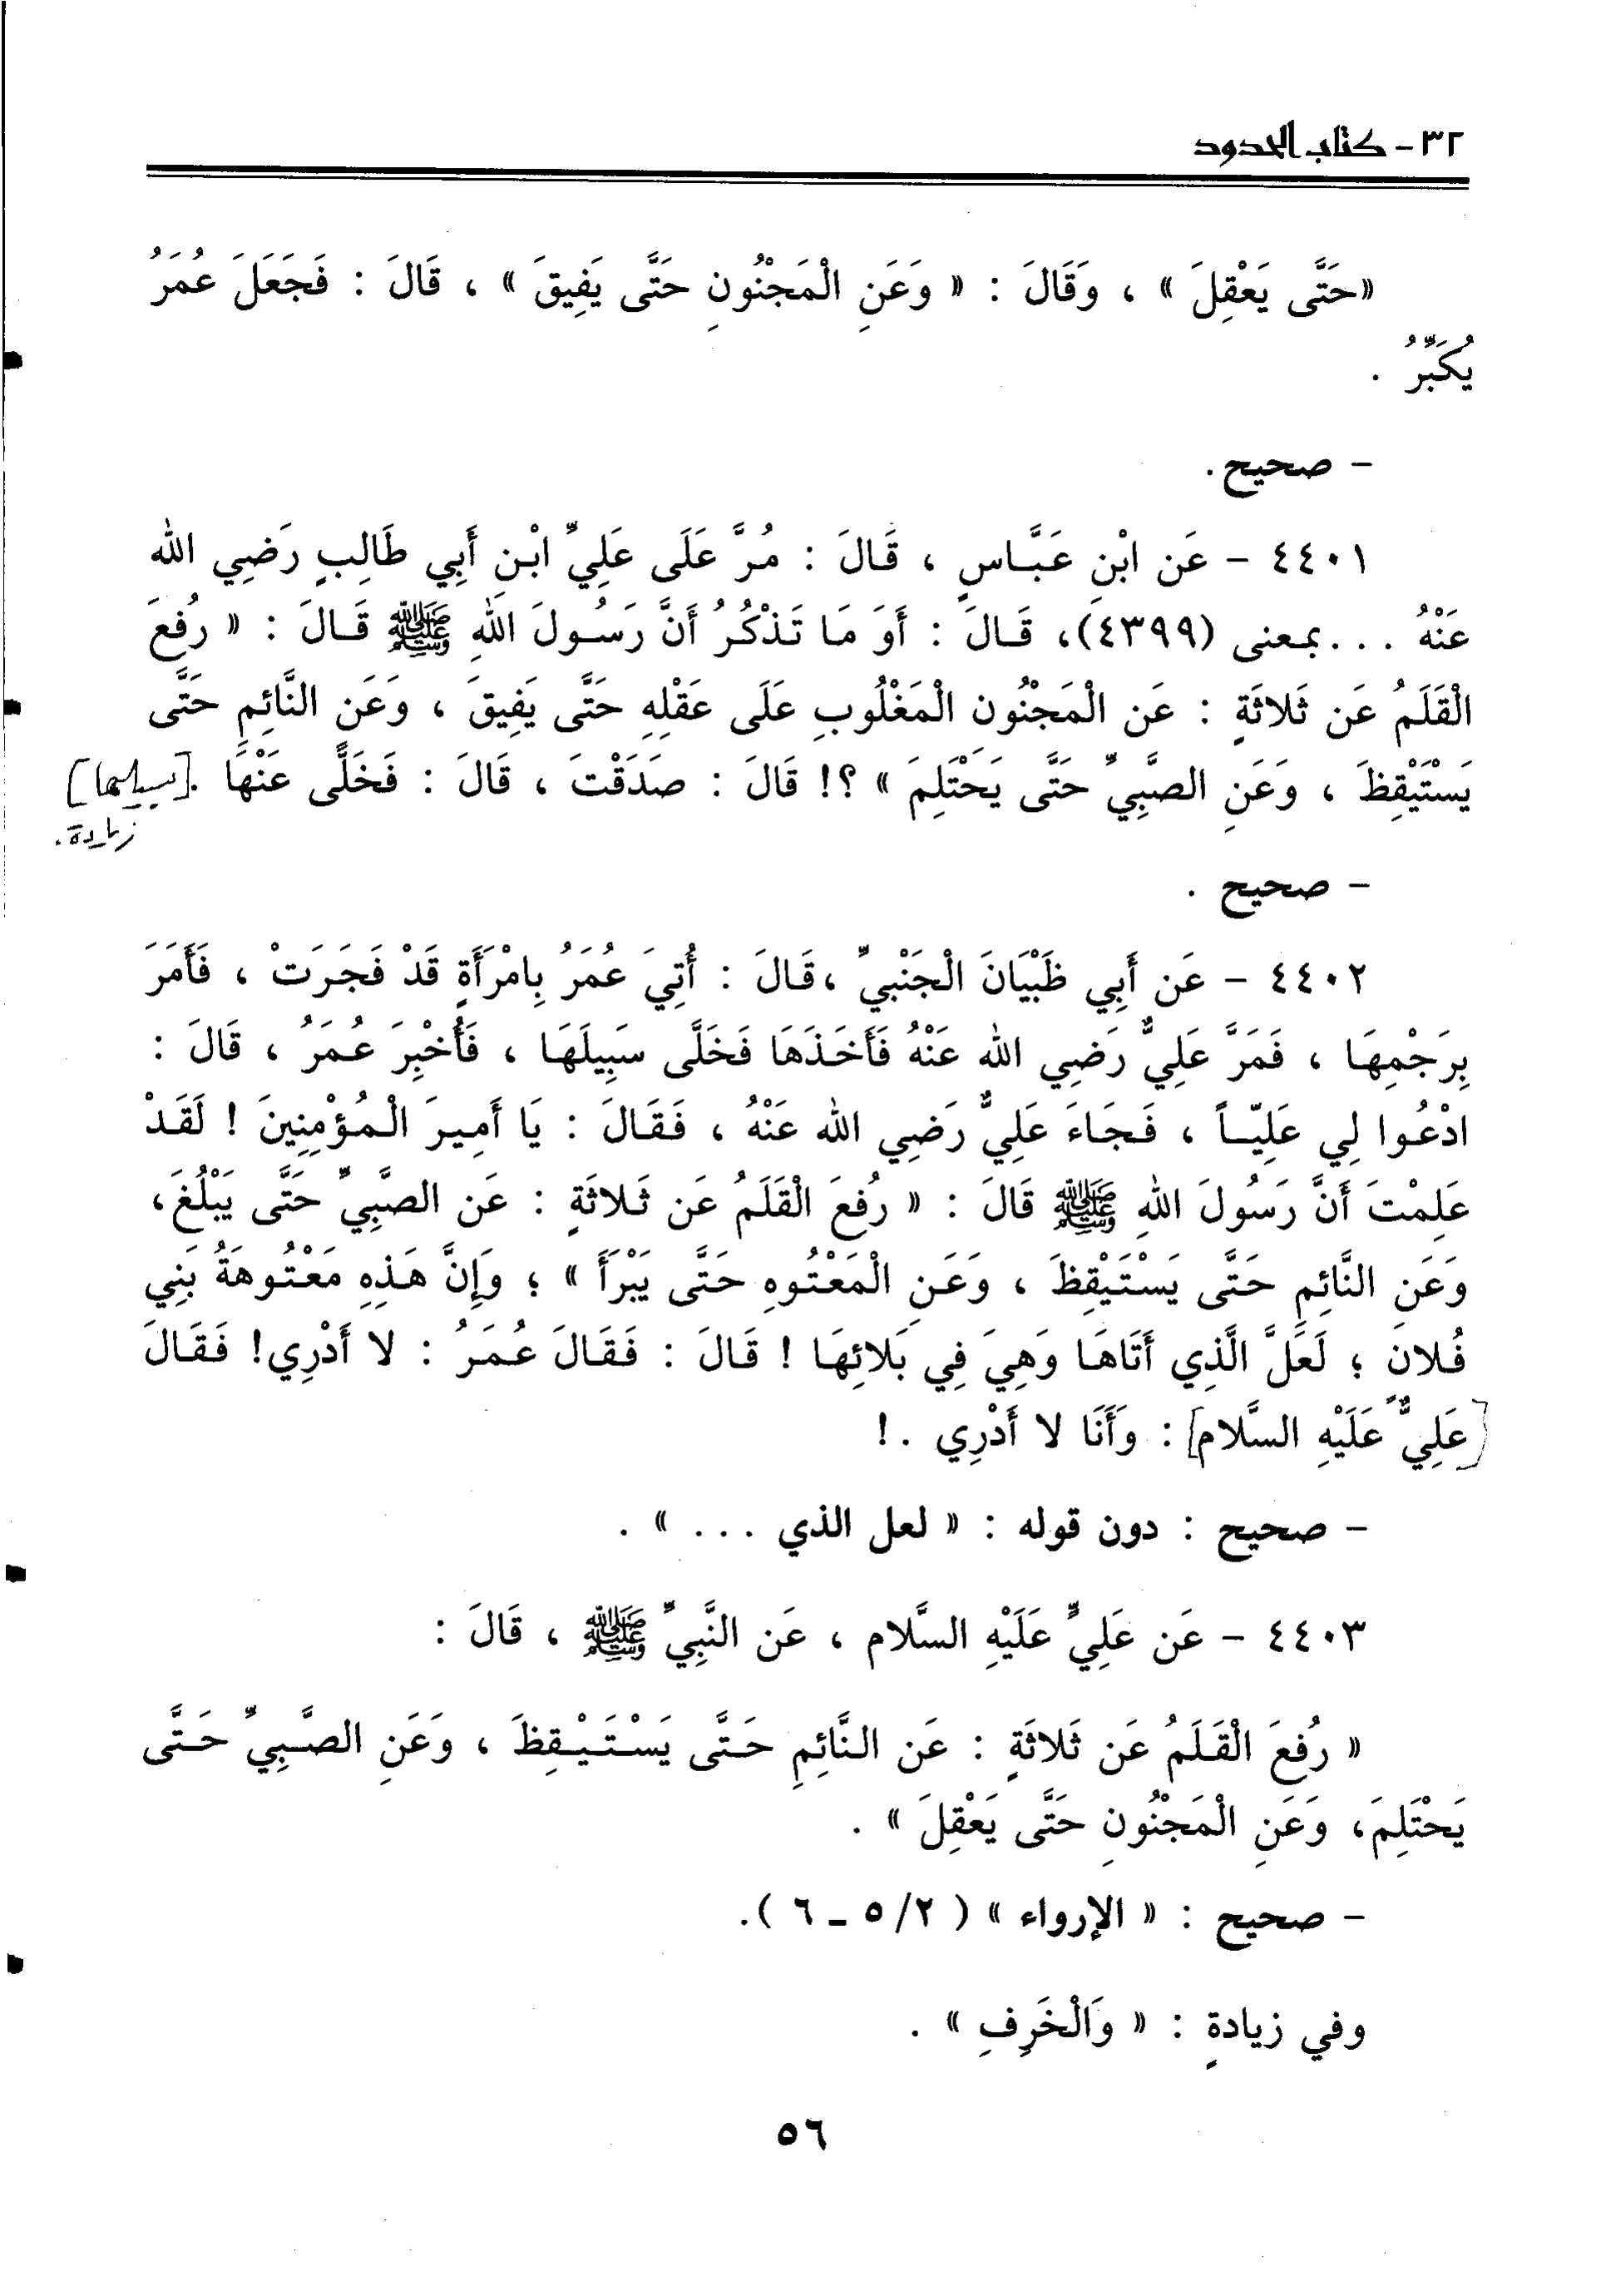 ٣٢ - كتاب الحدود
«حَتَّى يَعْقِلَ» ، وَقَالَ : « وَعَنِ الْمَجْنُونِ حَتَّى يَفِيقَ » ، قَالَ : فَجَعَلَ عُمَرُ
يُكَبِّرُ .
- صحيح.
٤٤٠١ - عَن ابْنِ عَبَّاسٍ ، قَالَ : مُرَّ عَلَى عَلِيِّ ابْنِ أَبِي طَالِبٍ رَضِي الله
عَنْهُ ...بمعنى (٤٣٩٩)، قَالَ : أَوَ مَا تَذْكُرُ أَنَّ رَسُولَ اللهِ ﷺ قَالَ : « رُفِعَ
الْقَلَمُ عَن ثَلاثَةٍ : عَن الْمَجْنُون الْمَغْلُوبِ عَلَى عَقْلِهِ حَتَّى يَفِيقَ ، وَعَن النَّائِمِ حَتَّى
يَسْتَيْقِظَ ، وَعَنِ الصَّبِيِّ حَتَّى يَحْتَلِمَ » ؟! قَالَ : صَدَقْتَ ، قَالَ : فَخَلَّى عَنْهَا .[سبيلها]
زيادة.
- صحيح .
٤٤٠٢ - عَن أَبِي ظَبْيَانَ الْجَنْبيِّ ،قَالَ : أُتِيَ عُمَرُ بِامْرَأَةٍ قَدْ فَجَرَتْ ، فَأَمَرَ
بِرَجْمِهَا ، فَمَرَّ عَلِيٌّ رَضِي الله عَنْهُ فَأَخَذَهَا فَخَلَّى سَبِيلَهَا ، فَأُخْبِرَ عُمَرُ ، قَالَ :
ادْعُوا لِي عَلِيّاً ، فَجَاءَ عَلِيٌّ رَضِي الله عَنْهُ ، فَقَالَ : يَا أَمِيرَ الْمُؤْمِنِينَ ! لَقَدْ
عَلِمْتَ أَنَّ رَسُولَ اللهِ ﷺ قَالَ : « رُفِعَ الْقَلَمُ عَن ثَلاثَةٍ : عَن الصَّبِيِّ حَتَّى يَبْلُغَ،
وَعَن النَّائِمِ حَتَّى يَسْتَيْقِظَ ، وَعَنِ الْمَعْتُوهِ حَتَّى يَبْرَأَ » ؛ وَإِنَّ هَذِهِ مَعْتُوهَةُ بَنِي
فُلانَ ؛ لَعَلَّ الَّذِي أَتَاهَا وَهِيَ فِي بَلائِهَا ! قَالَ : فَقَالَ عُمَرُ : لا أَدْرِي! فَقَالَ
[عَلِيٌّ عَلَيْهِ السَّلام] : وَأَنَا لا أَدْرِي .!
- صحيح : دون قوله : « لعل الذي ... » .
٤٤٠٣ - عَن عَلِيٍّ عَلَيْهِ السَّلام ، عَن النَّبِيِّ ﷺ ، قَالَ :
« رُفِعَ الْقَلَمُ عَن ثَلاثَةٍ : عَن النَّائِمِ حَتَّى يَسْتَيْقِظَ ، وَعَنِ الصَّبِيِّ حَتَّى
يَحْتَلِمَ، وَعَنِ الْمَجْنُونِ حَتَّى يَعْقِلَ » .
- صحيح : « الإرواء » ( ٢/ ٥ - ٦ ).
وفي زيادةٍ : « وَالْخَرِفِ » .
٥٦